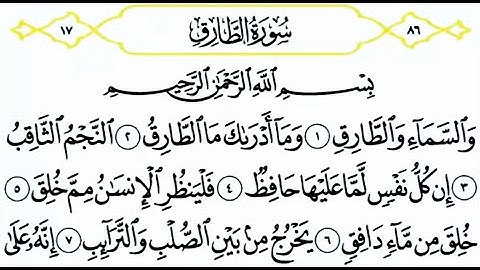 ٨٦ سُورَةُ الطَّارِقِ ١٧
بِسْمِ اللَّهِ الرَّحْمَٰنِ الرَّحِيمِ
وَالسَّمَاءِ وَالطَّارِقِ ١ وَمَا أَدْرَىٰكَ مَا الطَّارِقُ ٢ النَّجْمُ الثَّاقِبُ
٣ إِن كُلُّ نَفْسٍ لَّمَّا عَلَيْهَا حَافِظٌ ٤ فَلْيَنظُرِ الْإِنسَٰنُ مِمَّ خُلِقَ ٥
خُلِقَ مِن مَّآءٍ دَافِقٍ ٦ يَخْرُجُ مِنۢ بَيْنِ الصُّلْبِ وَالتَّرَآئِبِ ٧ إِنَّهُ عَلَىٰ